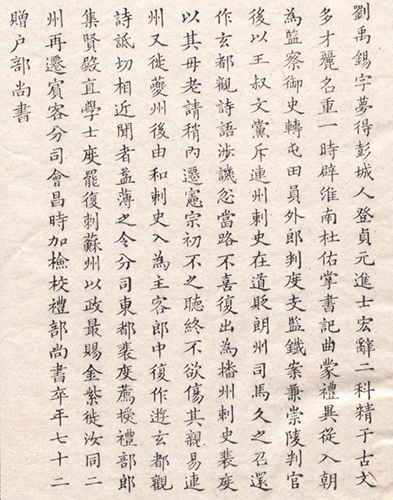 劉禹錫字夢得彭城人登貞元進士宏辭二科精于古文
多才麗名重一時辟維南杜佑掌書記曲蒙禮異從入朝
為監察御史轉屯田員外郎判度支監鐵案兼崇陵判官
後以王叔文黨斥連州刺史在道貶朗州司馬久之召還
作玄都觀詩語涉譏忿當路不喜復出為播州刺史裴度
以其母老請稍內遷憲宗初不之聽終不欲傷其親易連
州又徙夔州後由和刺史入為主客郎中復作遊玄都觀
詩詆切相近聞者益薄之令分司東都裴度薦授禮部郎
集賢殿直學士度罷復刺蘇州以政最賜金紫徙汝同二
州再遷賓客分司會昌時加檢校禮部尚書卒年七十二
贈户部尚書